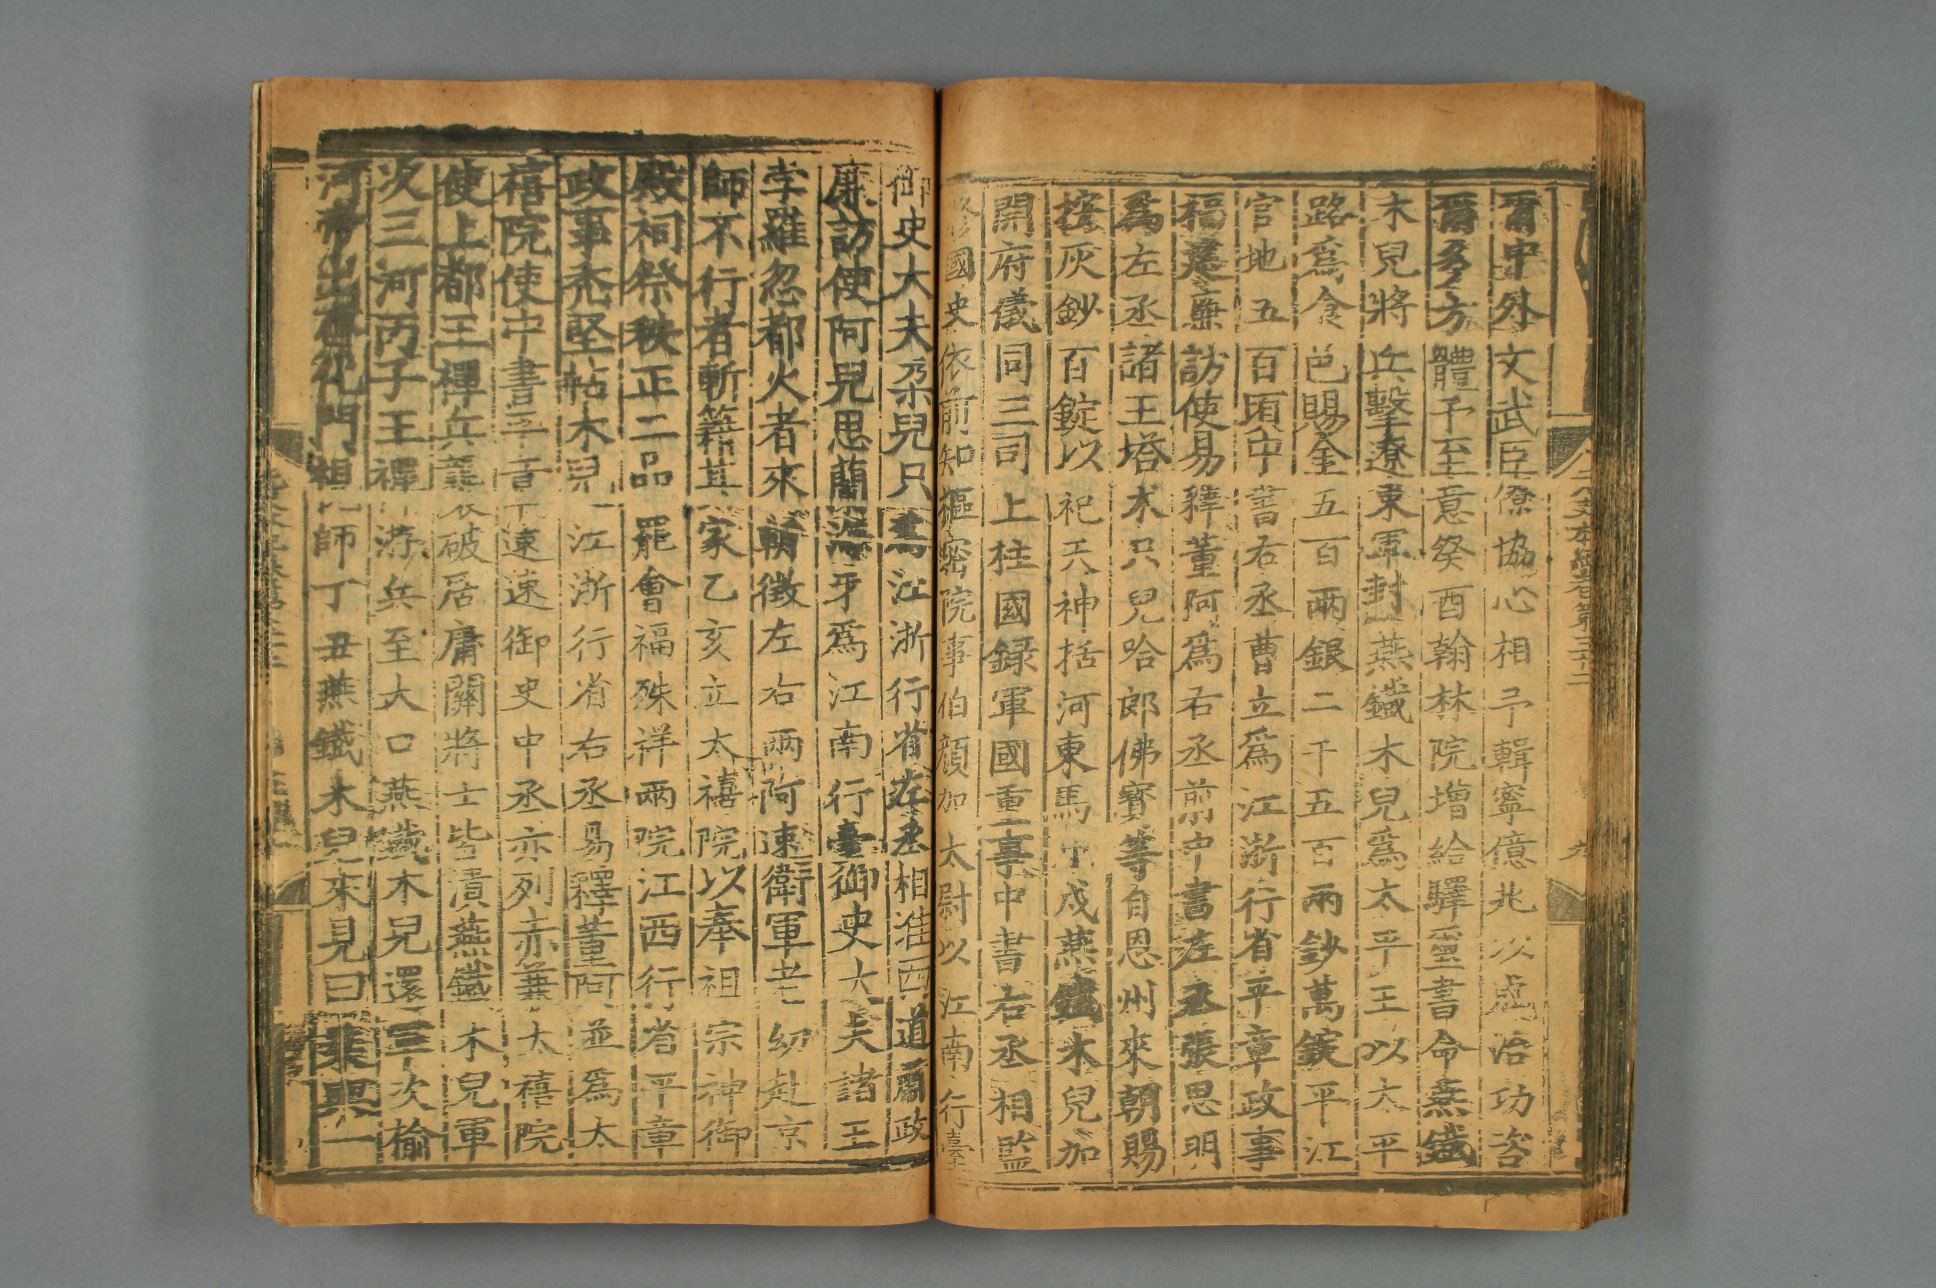 爾中外文武臣僚協心相予輯寧億兆以成治功咨
爾多方體予至意癸酉翰林院增給驛璽書命燕鐵
木兒將兵擊遼東軍封燕鐵木兒爲太平王以太平
路爲食邑賜金五百兩銀二千五百兩鈔萬錠平江
官地五百頃中書右丞曹立爲江浙行省平章政事
福建廉訪使易釋董阿爲右丞前中書左丞張思明
爲左丞諸王塔木只兒哈郎佛寶等自恩州來朝賜
按灰鈔百錠以祀天神括河東馬甲戌燕鐵木兒加
開府儀同三司上柱國録軍國重事中書右丞相監
修國史依前知樞密院事伯顔加太尉以江南行臺
御史大夫朶兒只爲江浙行省左丞相淮西道肅政
廉訪使阿兒思蘭海牙爲江南行臺御史大夫諸王
孛羅忽都火者來朝徵左右兩阿速衛軍老幼赴京
師不行者斬籍其家乙亥立太禧院以奉祖宗神御
殿祠祭秩正二品罷會福殊祥兩院江西行省平章
政事禿堅帖木兒江浙行省右丞易釋董阿並爲太
禧院使中書平章速速御史中丞亦列赤兼太禧院
使上都王禪兵襲破居庸關將士皆潰燕鐵木兒軍
次三河丙子王禪游兵至大口燕鐵木兒還軍次榆
河帝出齊化門視師丁丑燕鐵木兒來見曰乘輿一